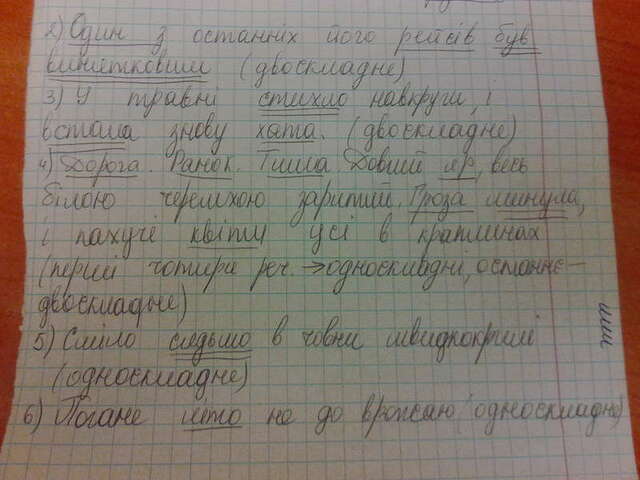 2) Один з останніх його рейсів був
винятковим (двоскладне)
3) У травні стихло навкруги, і
встала знову хата. (двоскладне)
4) Дорога. Ранок. Тиша. Довгий яр, весь
білою черемхою заритий. Гроза минула,
і пахучі квіти усі в краплинах
(перші чотири реч. → односкладні, останнє –
двоскладне)
5) Сміло сядьмо в човни швидкокрилі
(односкладне)
6) Погане літо не до врожаю (односкладне)